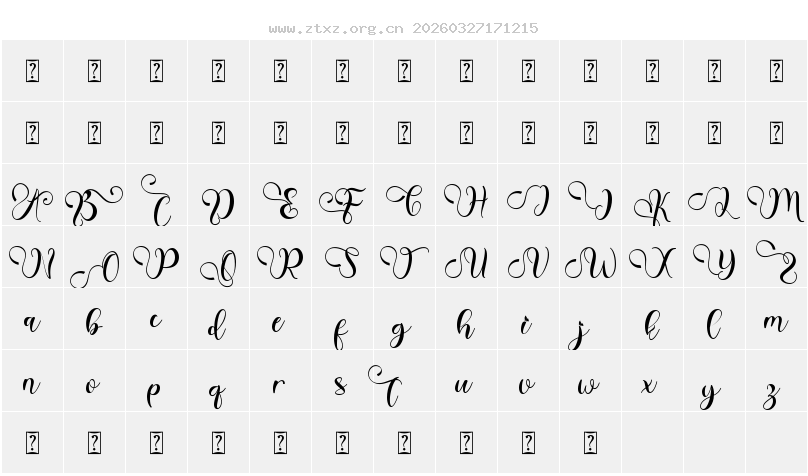 www.ztxz.org.cn 20260327171215
A B C D E F G H I J K L M
N O P Q R S T U V W X Y Z
a b c d e f g h i j k l m
n o p q r s t u v w x y z